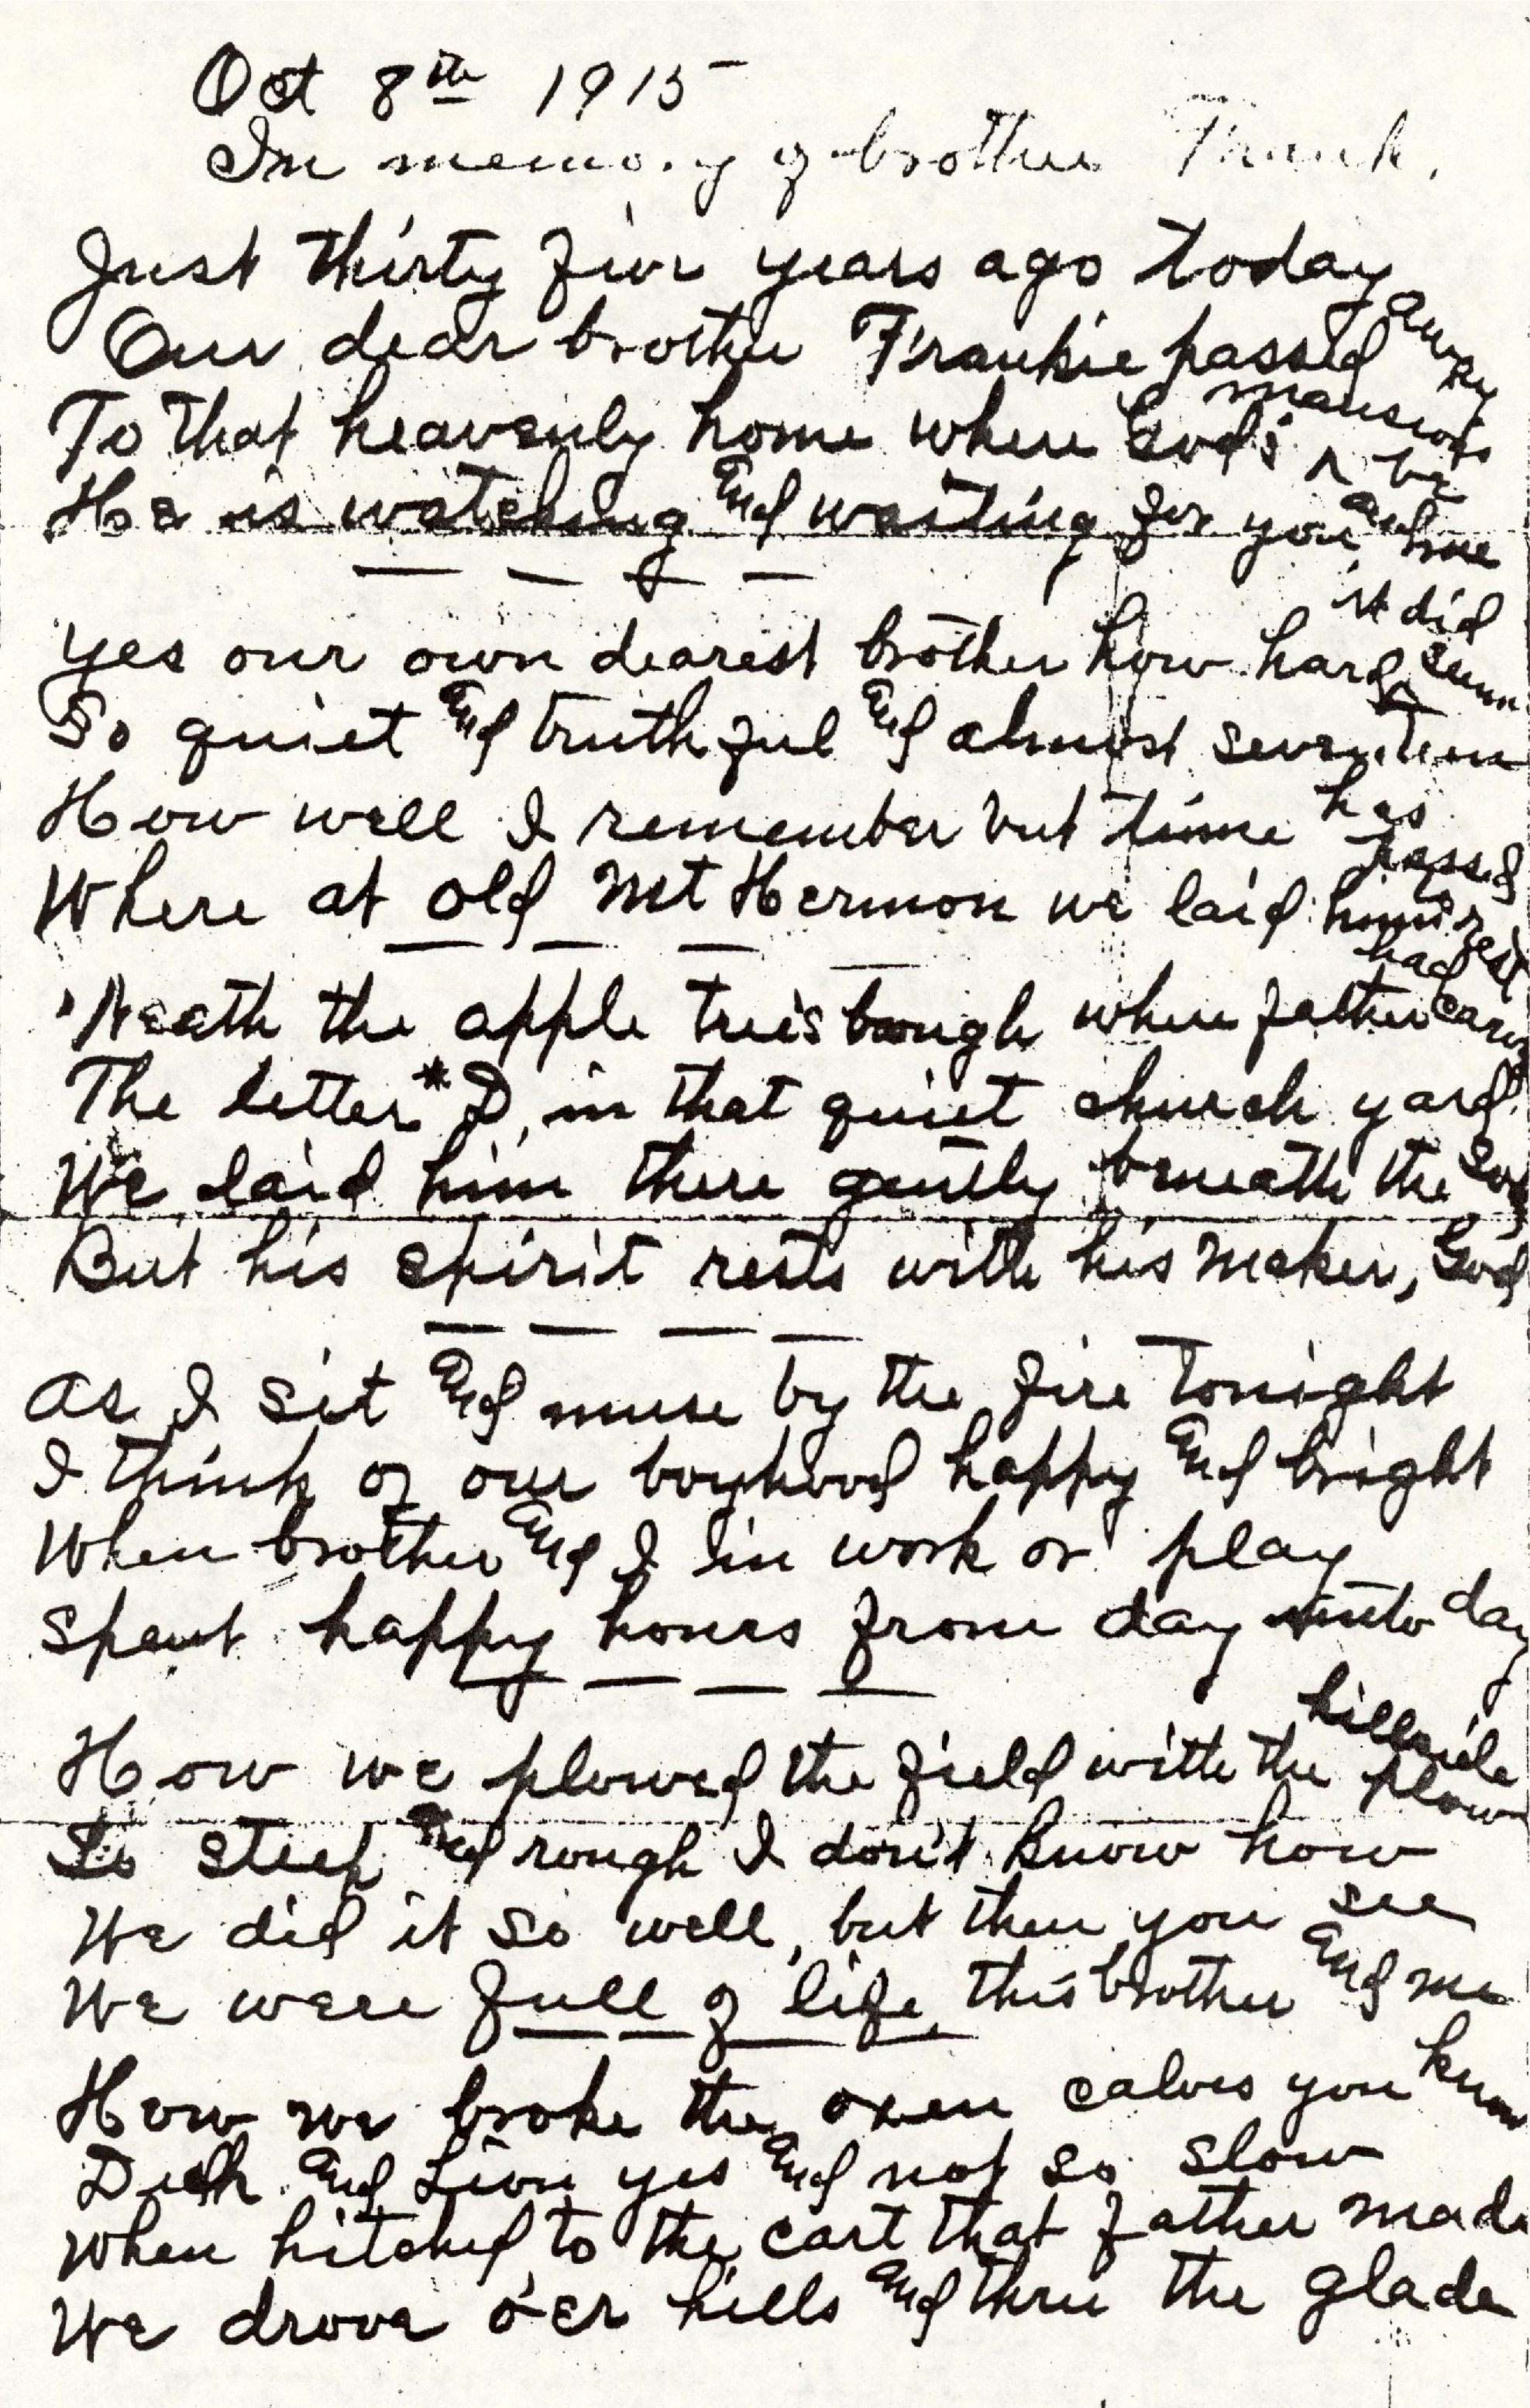 Oct 8th 1915
In memory of brother Frank.
Just thirty five years ago today
Our dear brother Frankie passed away
To that heavenly home where God's mansions be
He is watching and waiting for you and me
Yes our own dearest brother how hard it did seem
So quiet and truthful and almost seventeen
How well I remember but time has passed
Where at old Mt Hermon we laid him rest
'Neath the apple trees bough where father had carved
The letter * D, in that quiet church yard
We laid him there gently beneath the sod
But his spirit rests with his Maker, God
As I sit and muse by the fire tonight
I think of our boyhood happy and bright
When brother and I in work or play
Spent happy hours from day unto day
How we plowed the field with the hillside plow
So steep and rough I don't know how
We did it so well, but then you see
We were full of life, this brother and me
How we broke the oxen calves you know
Dick and Lion yes and not so slow
When hitched to the cart that father made
We drove o'er hills and thru the glade